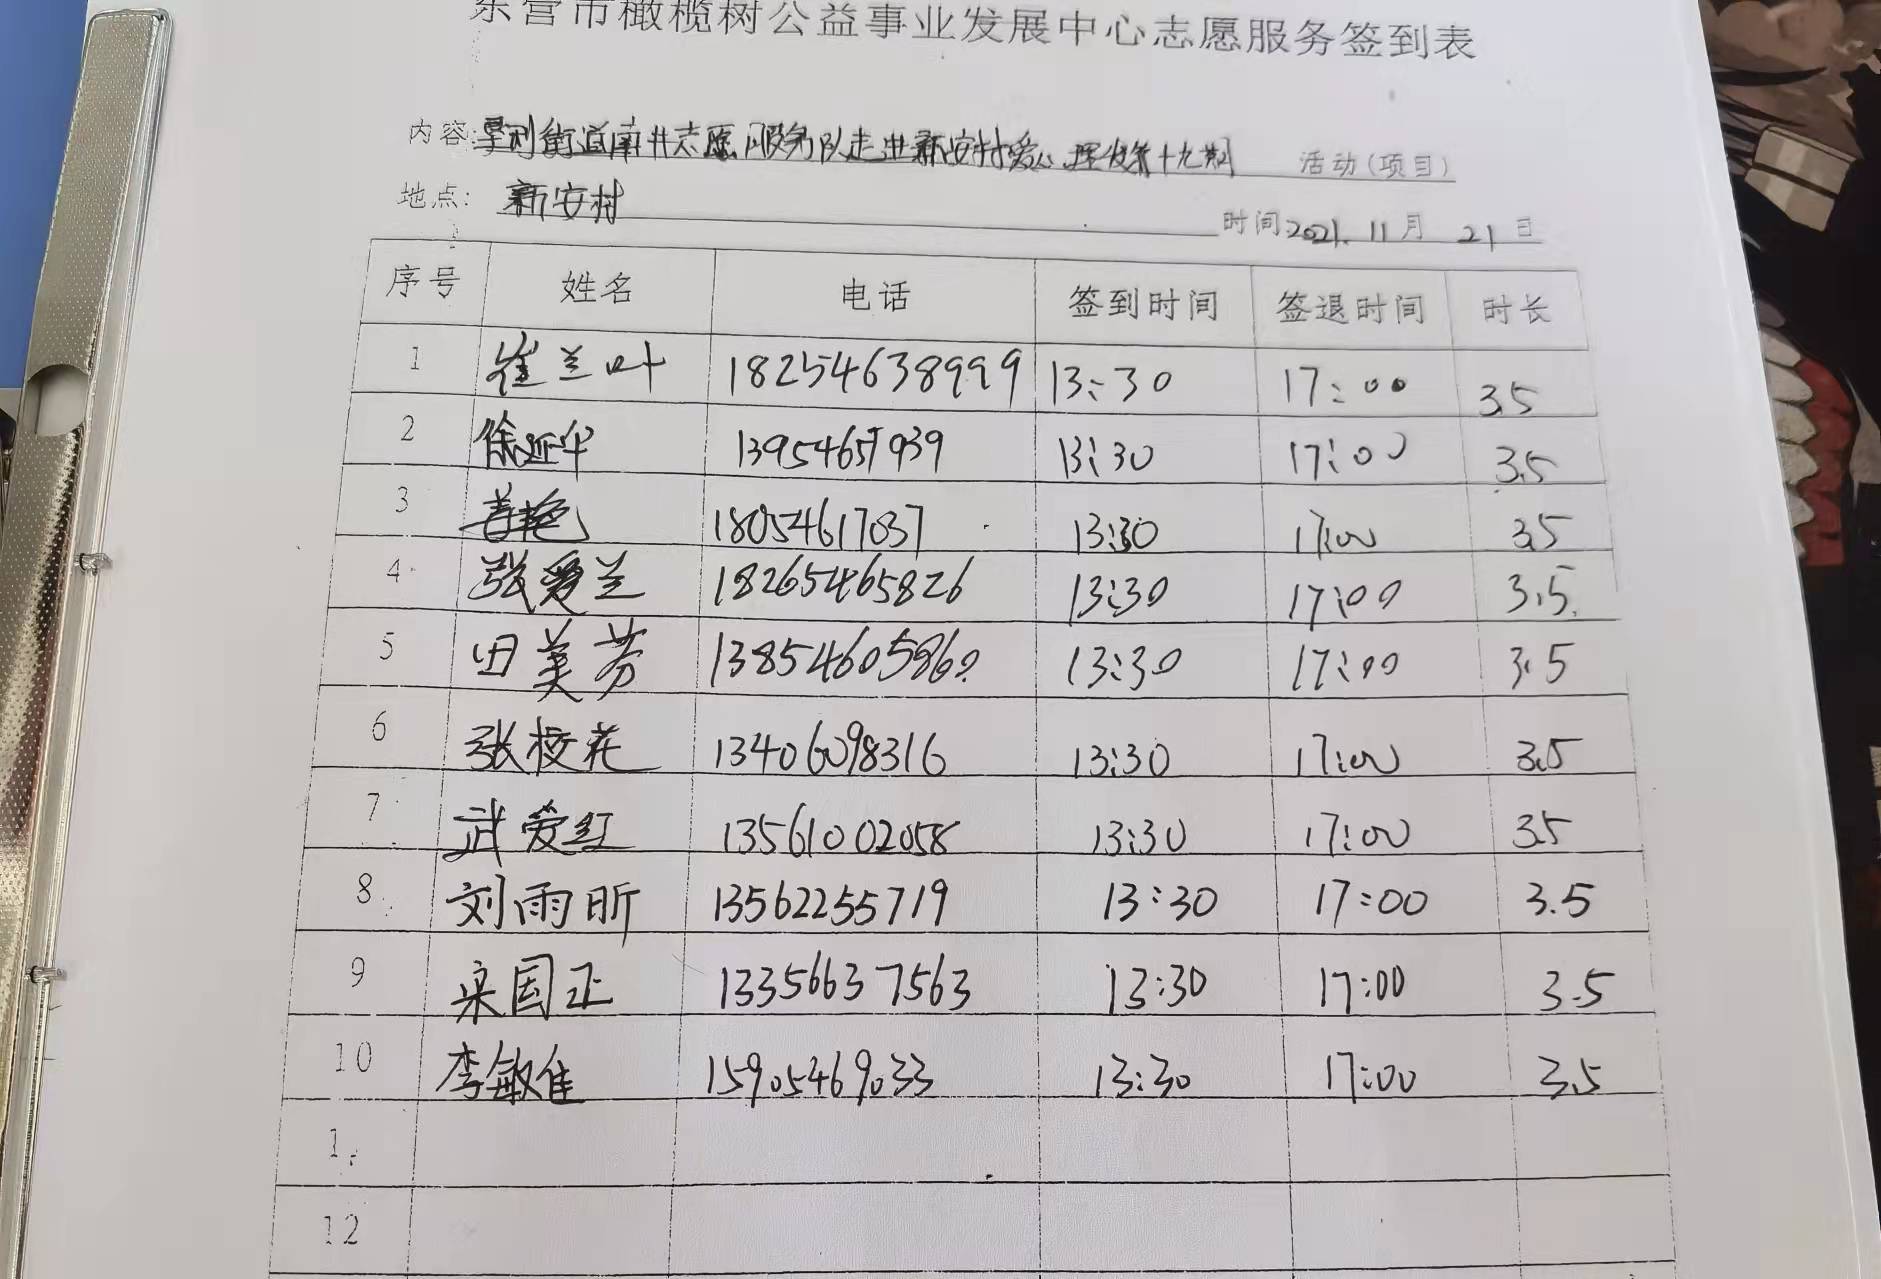 东营市橄榄树公益事业发展中心志愿服务签到表
内容:垦利街道南井志愿服务队走进新安村爱心理发第十九期 活动(项目)
地点: 新安村 时间2021.11月21日
序号 姓名 电话 签到时间 签退时间 时长
1 崔兰叶 18254638999 13:30 17:00 3.5
2 徐延华 13954657939 13:30 17:00 3.5
3 18054617037 13:30 17:00 3.5
4 张爱兰 18265465826 13:30 17:00 3.5
5 田美芬 13:30 17:00 3.5
6 张校花 13406098316 13:30 17:00 3.5
7 武爱红 13561002058 13:30 17:00 3.5
8 刘雨昕 13562255719 13:30 17:00 3.5
9 国正 13356637563 13:30 17:00 3.5
10 李敏佳 15905469033 13:30 17:00 3.5
1
12